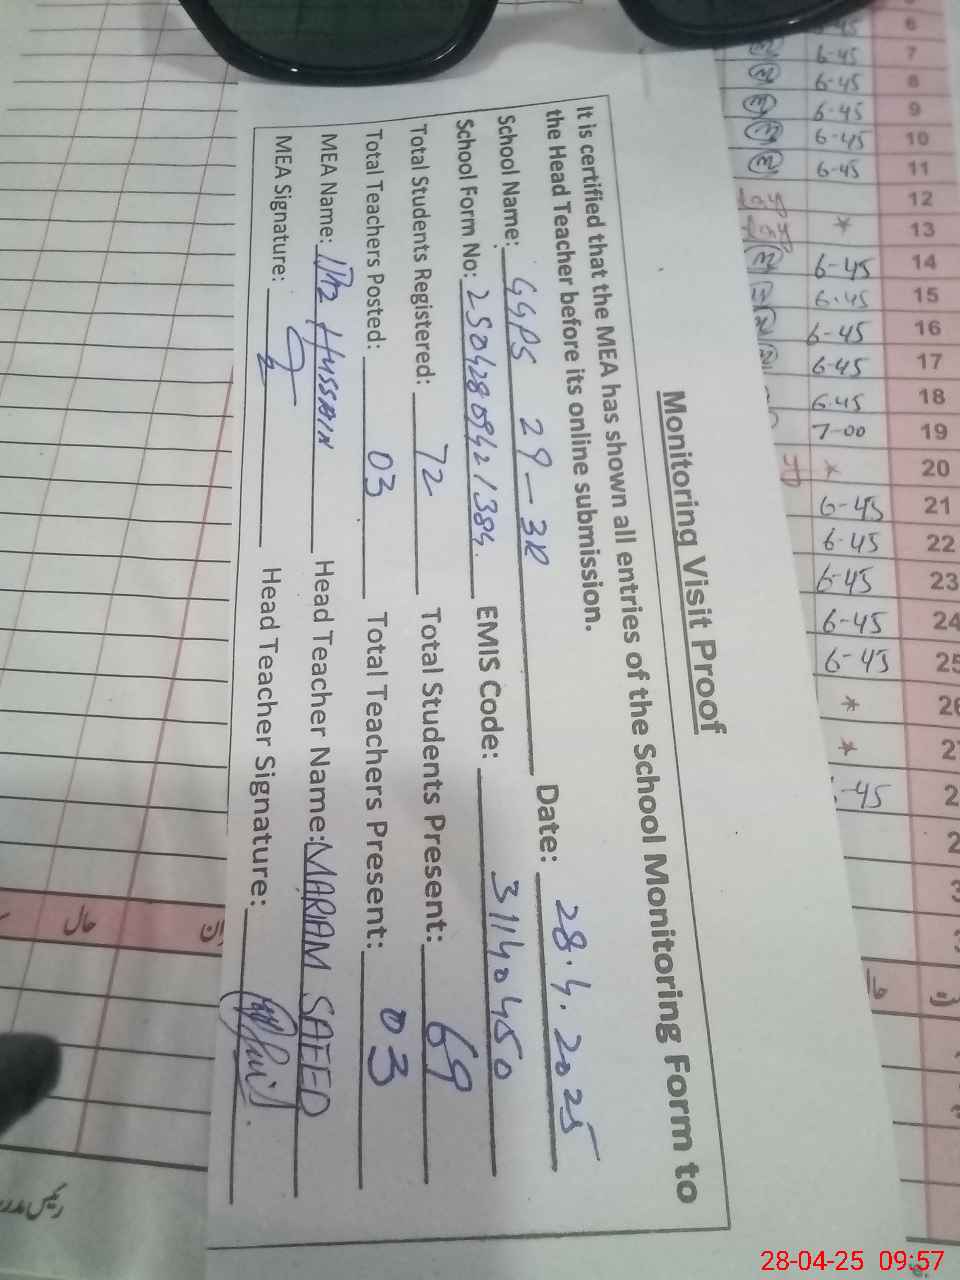 Monitoring Visit Proof
It is certified that the MEA has shown all entries of the School Monitoring Form to
the Head Teacher before its online submission.
School Name: GGPS 29-3R Date: 28.4.2025
School Form No: 25042809421384. EMIS Code: 31140450
Total Students Registered: 72 Total Students Present: 69
Total Teachers Posted: 03 Total Teachers Present: 03
MEA Name: HUSSAIN Head Teacher Name: MARIAM SAEED
MEA Signature: Head Teacher Signature:
6
6-45 7
6-45 8
6-45 9
6-45 10
6-45 11
12
* 13
6-45 14
6-45 15
6-45 16
6-45 17
6-45 18
7-00 19
* 20
6-45 21
6-45 22
6-45 23
6-45 24
6-45 25
*
*
-45
حال
28-04-25 09:57